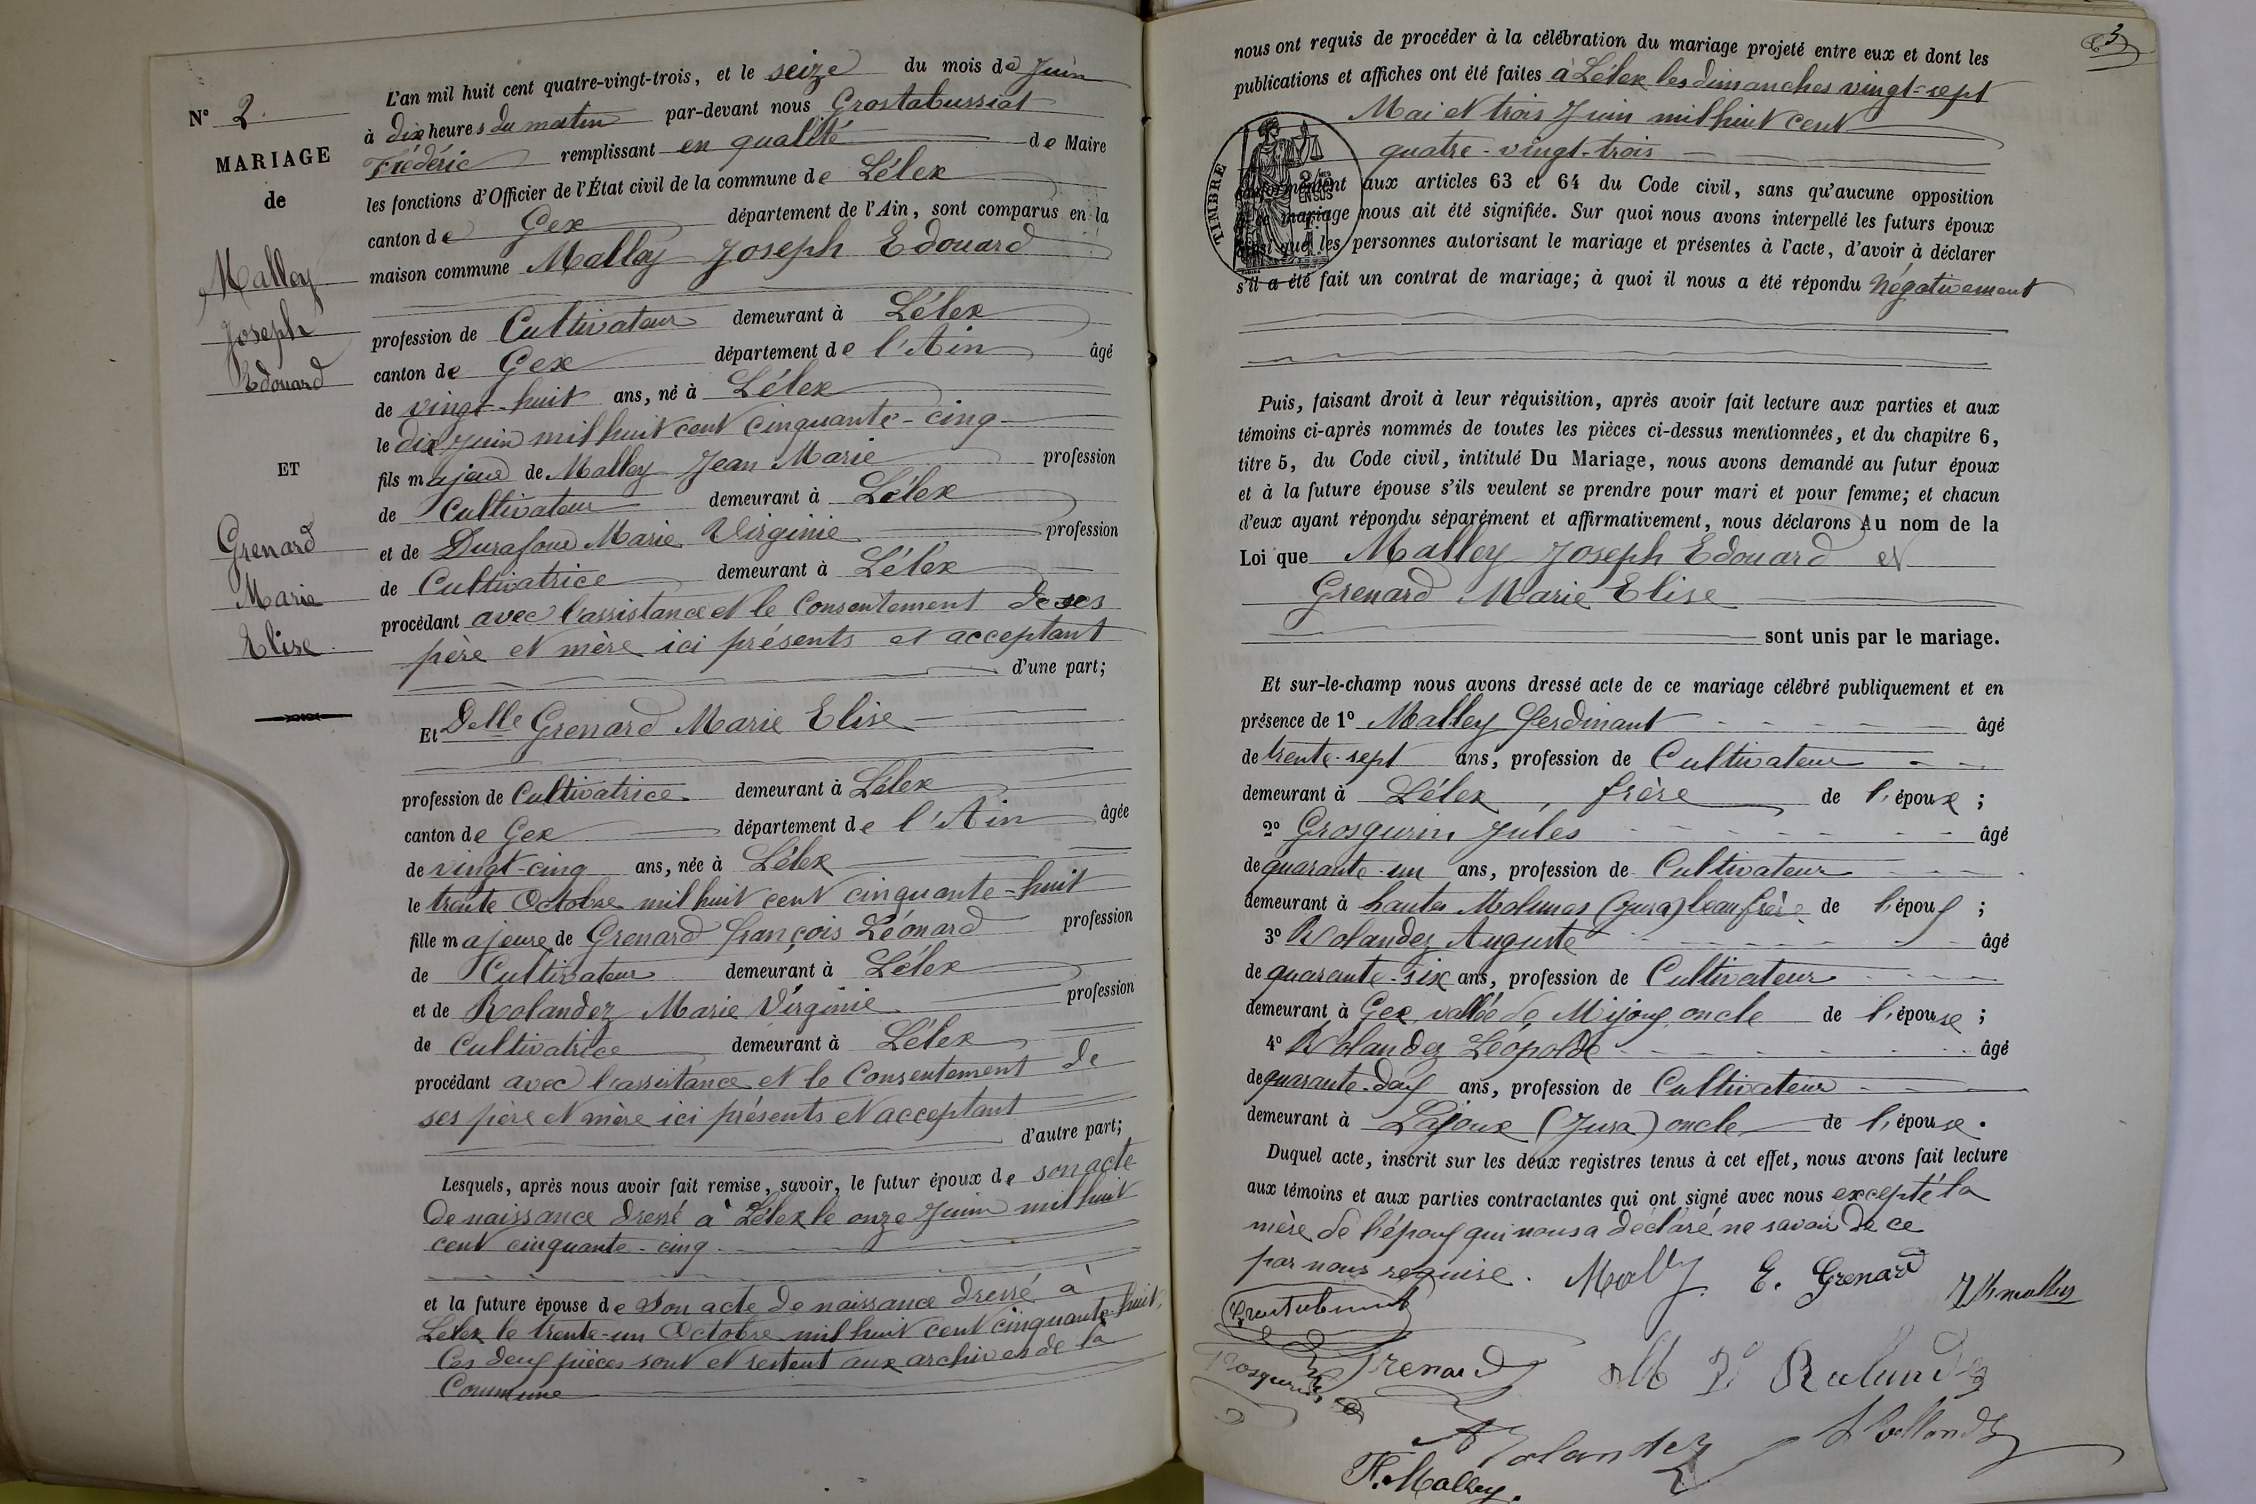 N° 2.
MARIAGE
de
Malley
Joseph
Edouard
ET
Grenard
Marie
Elise
L'an mil huit cent quatre-vingt-trois, et le seize du mois de Juin
à dix heures du matin par-devant nous Grostabussiat
Frédéric remplissant en qualité de Maire
les fonctions d'Officier de l'État civil de la commune de Lélex
canton de Gex département de l'Ain, sont comparus en la
maison commune Malley Joseph Edouard
profession de Cultivateur demeurant à Lélex
canton de Gex département de l'Ain âgé
de vingt-huit ans, né à Lélex
le dix Juin mil huit cent cinquante-cinq
fils majeur de Malley Jean Marie profession
de Cultivateur demeurant à Lélex
et de Durafour Marie Virginie profession
de Cultivatrice demeurant à Lélex
procédant avec l'assistance et le Consentement de ses
père et mère ici présents et acceptant
d'une part;
Et Delle Grenard Marie Elise
profession de Cultivatrice demeurant à Lélex
canton de Gex département de l'Ain âgée
de vingt-cinq ans, née à Lélex
le trente Octobre mil huit cent cinquante-huit
fille majeure de Grenard François Léonard profession
de Cultivateur demeurant à Lélex
et de Rolandez Marie Virginie profession
de Cultivatrice demeurant à Lélex
procédant avec l'assistance et le Consentement de
ses père et mère ici présents et acceptant
d'autre part;
Lesquels, après nous avoir fait remise, savoir, le futur époux de son acte
de naissance dressé à Lélex le onze Juin mil huit
cent cinquante-cinq
et la future épouse de Son acte de naissance dressé à
Lélex le trente-un Octobre mil huit cent cinquante-huit,
Ces deux pièces sont et restent aux archives de la
Commune
3
nous ont requis de procéder à la célébration du mariage projeté entre eux et dont les
publications et affiches ont été faites à Lélex les dimanches vingt-sept
Mai et trois Juin mil huit cent
quatre-vingt-trois
TIMBRE
conformément aux articles 63 et 64 du Code civil, sans qu'aucune opposition
mariage nous ait été signifiée. Sur quoi nous avons interpellé les futurs époux
ainsi que les personnes autorisant le mariage et présentes à l'acte, d'avoir à déclarer
s'il a été fait un contrat de mariage; à quoi il nous a été répondu Négativement
Puis, faisant droit à leur réquisition, après avoir fait lecture aux parties et aux
témoins ci-après nommés de toutes les pièces ci-dessus mentionnées, et du chapitre 6,
titre 5, du Code civil, intitulé Du Mariage, nous avons demandé au futur époux
et à la future épouse s'ils veulent se prendre pour mari et pour femme; et chacun
d'eux ayant répondu séparément et affirmativement, nous déclarons Au nom de la
Loi que Malley Joseph Edouard et
Grenard Marie Elise
sont unis par le mariage.
Et sur-le-champ nous avons dressé acte de ce mariage célébré publiquement et en
présence de 1° Malley Ferdinant âgé
de trente-sept ans, profession de Cultivateur
demeurant à Lélex, frère de l'époux ;
2° Grosgurin Jules âgé
de quarante-un ans, profession de Cultivateur
demeurant à hautes Molunes (Jura) beau frère de l'époux ;
3° Rolandez Auguste âgé
de quarante-six ans, profession de Cultivateur
demeurant à Gex vallée de Mijoux oncle de l'épouse ;
4° Rolandez Léopolde âgé
de quarante-deux ans, profession de Cultivateur
demeurant à Lajoux (Jura) oncle de l'épouse.
Duquel acte, inscrit sur les deux registres tenus à cet effet, nous avons fait lecture
aux témoins et aux parties contractantes qui ont signé avec nous excepté la
mère de l'époux qui nous a déclaré ne savoir de ce
par nous requise. Mally E. Grenard
Grostabussiat
Grosgurin Grenard M V Rolandez
A Rolandez L Rollandez
F. Malley.